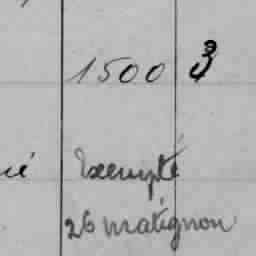 1500 3
né Exempté
26 matignon